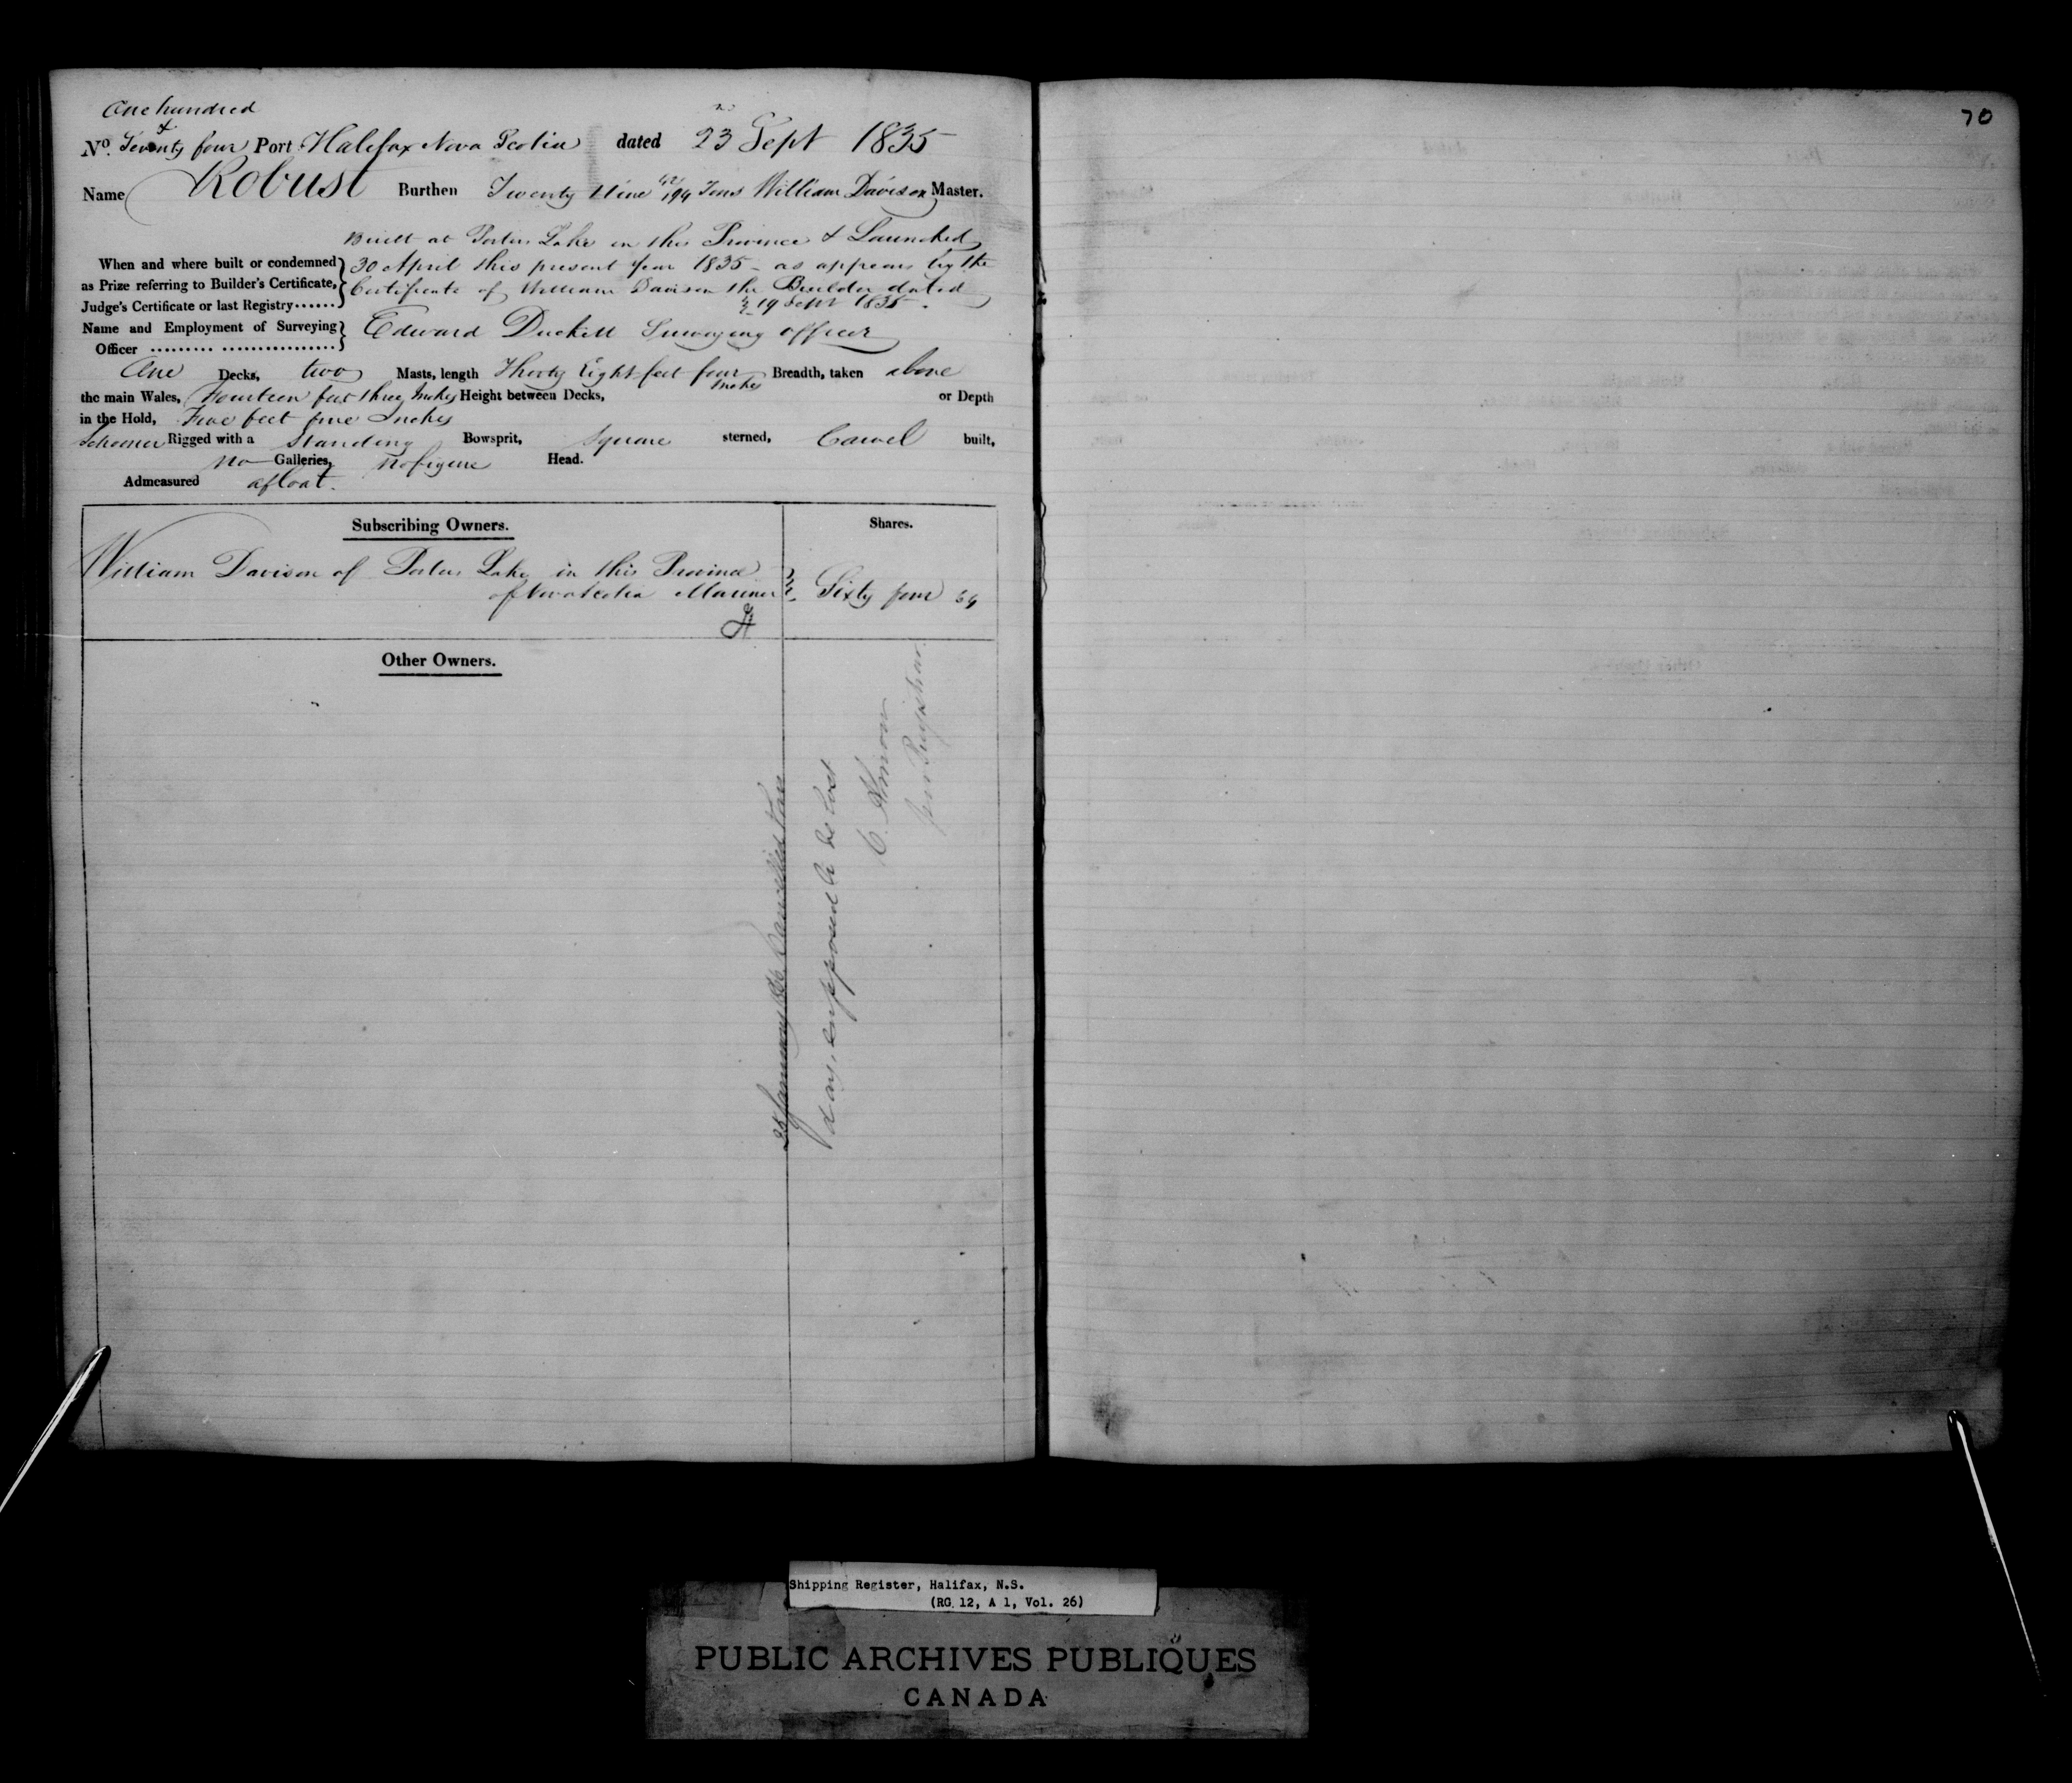 One hundred
&
No. Seventy four Port Halifax Nova Scotia dated 23 Sept 1835
Name Robust Burthen Twenty Nine 42/94 Tons William Davison Master.
Built at Porters Lake in this Province & Launched
When and where built or condemned } 30 April this present year 1835 - as appears by the
as Prize referring to Builder's Certificate, } Certificate of William Davison the Builder dated
Judge's Certificate or last Registry...... } 19 Sept 1835 -
Name and Employment of Surveying } Edward Duckett Surveying officer
Officer ......... ................ }
One Decks, two Masts, length Thirty Eight feet four Inches Breadth, taken above
the main Wales, Fourteen feet three Inches Height between Decks, or Depth
in the Hold, Five feet five Inches
Schooner Rigged with a Standing Bowsprit, Square sterned, Carvel built,
no Galleries, no figure Head.
Admeasured afloat.
Subscribing Owners. Shares.
William Davison of Porters Lake in this Province
of Nova Scotia Mariner } Sixty four 64
Other Owners.
January Cancelled
supposed to be lost
C. Almon
70
Shipping Register, Halifax, N.S.
(RG 12, A 1, Vol. 26)
PUBLIC ARCHIVES PUBLIQUES
CANADA